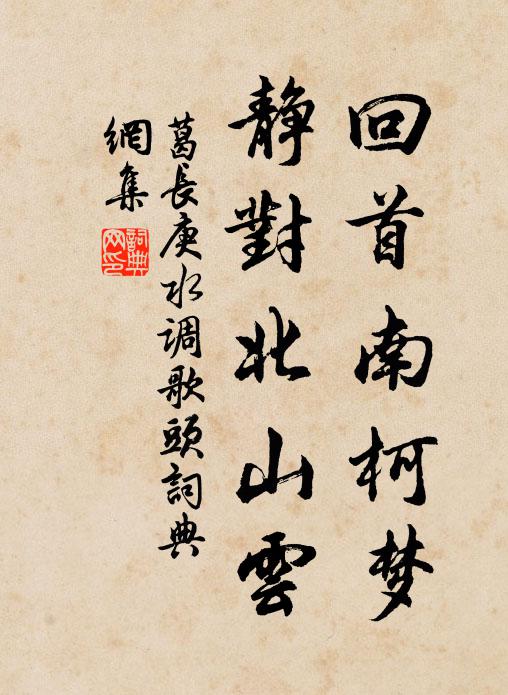 回首南柯梦
静對北山雲
葛長庚水调歌頭詞典
網集
詞典网印